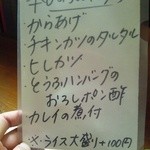 ・からあげ
・チキンカツのタルタル
・ヒレカツ
・とうふハンバーグの
おろしポン酢
・カレイの煮付
※ライス大盛り+100円